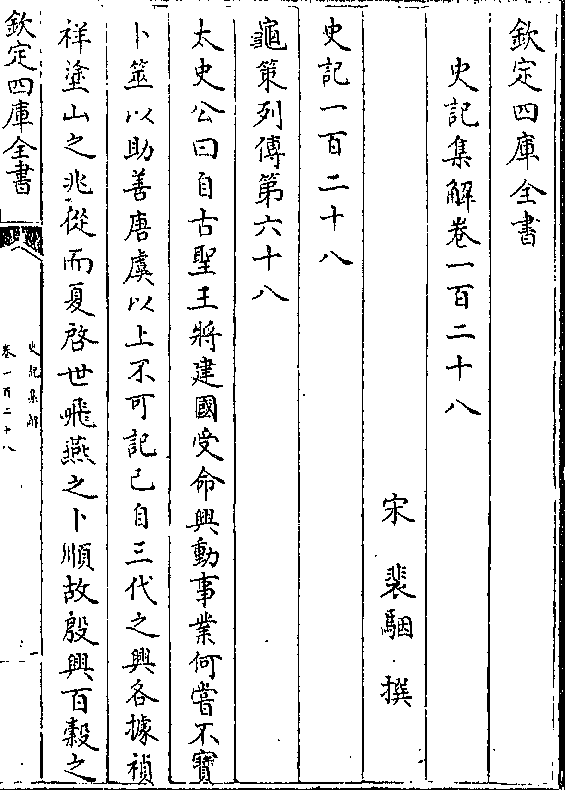 欽定四庫全書
史記集解卷一百二十八
宋 裴駰 撰
史記一百二十八
龜策列傳第六十八
太史公曰自古聖王將建國受命興動事業何嘗不寶
卜筮以助善唐虞以上不可記已自三代之興各據禎
祥塗山之兆從而夏啓世飛燕之卜順故殷興百穀之
欽定四庫全書
史記集解
卷一百二十八